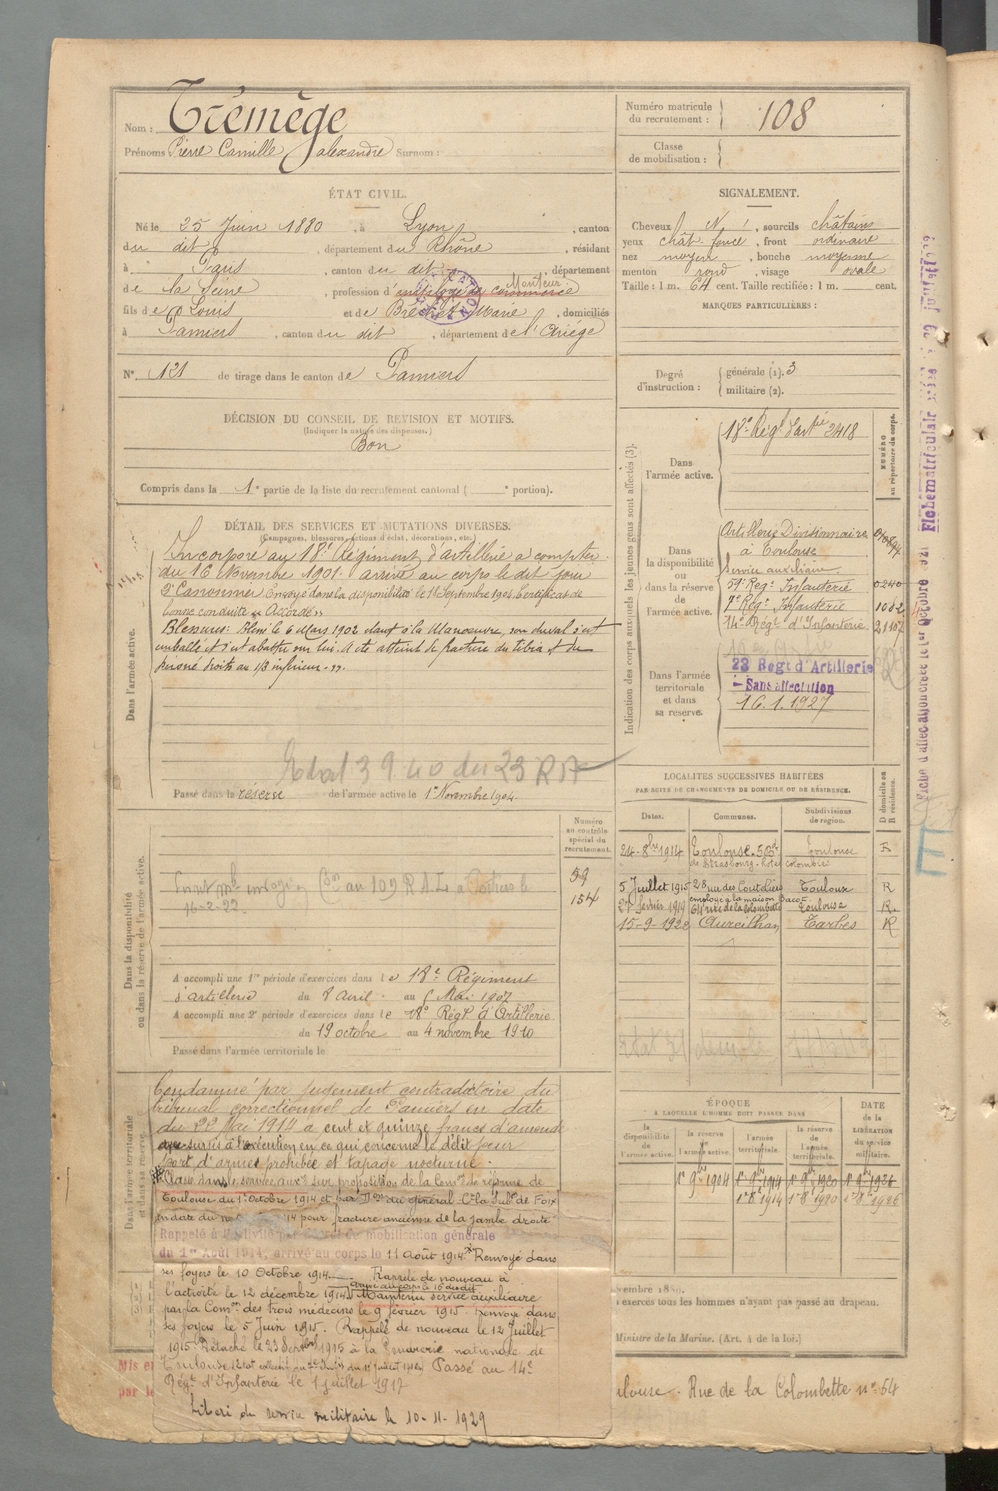 Nom : Trémège
Prénoms Pierre Camille Alexandre Surnom :
Numéro matricule du recrutement : 108
Classe de mobilisation :
ÉTAT CIVIL.
Né le 25 Juin 1880, à Lyon, canton
du dit, département du Rhône, résidant
à Paris, canton du dit, département
de la Seine, profession d'employé de commerce Monteur
fils de Louis et de Marie, domiciliés
à Pamiers, canton du dit, département de l'Ariège
N° 121 de tirage dans le canton de Pamiers
DÉCISION DU CONSEIL DE REVISION ET MOTIFS.
(Indiquer la nature des dispenses.)
Bon
Compris dans la 1e partie de la liste du recrutement cantonal ( e portion).
SIGNALEMENT.
Cheveux N, sourcils châtains
yeux chât. foncé, front ordinaire
nez moyen, bouche moyenne
menton rond, visage ovale
Taille : 1 m. 64 cent. Taille rectifiée : 1 m. cent.
MARQUES PARTICULIÈRES :
Degré d'instruction : générale (1). 3
militaire (2).
DÉTAIL DES SERVICES ET MUTATIONS DIVERSES.
(Campagnes, blessures, actions d'éclat, décorations, etc.)
Dans l'armée active.
Incorporé au 18e Régiment d'artillerie à compter
du 16 Novembre 1901. arrivé au corps le dit jour
2e Canonnier Envoyé dans la disponibilité le 18 Septembre 1904. Certificat de
bonne conduite « Accordé »
Blessures : Blessé le 6 Mars 1902 étant à la Manoeuvre, son cheval s'est
emballé et s'est abattu sur lui. A été atteint de fracture du tibia et du
péroné droits au 1/3 inférieur.
Etat 39 40 du 23 RA
Passé dans la réserve de l'armée active le 1er Novembre 1904.
Indication des corps auxquels les jeunes gens sont affectés (3).
NUMÉRO au répertoire du corps.
Dans l'armée active.
18e Régt d'artie 2418
Dans la disponibilité ou dans la réserve de l'armée active.
Artillerie Divisionnaire
à Toulouse
Service auxiliaire
59e Régt Infanterie 0240
7e Régt Infanterie 1082
14e Régt d'Infanterie 21107
Dans l'armée territoriale et dans sa réserve.
23 Régt d'Artillerie
- Sans affectation
16.1.1927
Dans la disponibilité ou dans la réserve de l'armée active.
Numéro au contrôle spécial du recrutement.
59
154
au 109 R.A.L. à Poitiers le
16-2-22.
A accompli une 1re période d'exercices dans le 18e Régiment
d'artillerie du 8 avril au 5 Mai 1907
A accompli une 2e période d'exercices dans le 18e Régt d'Artillerie
du 19 octobre au 4 novembre 1910
Passé dans l'armée territoriale le
LOCALITÉS SUCCESSIVES HABITÉES
PAR SUITE DE CHANGEMENTS DE DOMICILE OU DE RÉSIDENCE.
Dates. Communes. Subdivisions de région. D domicile ou R résidence.
24-8bre 1914 Toulouse. 50 Bd Toulouse R
de Strasbourg. Hotel colombier
5 Juillet 1915 28 rue des Couteliers Toulouse R
27 février 1919 64 rue de la colombette Toulouse R.
15-9-1922 Aureilhan Tarbes R
ÉPOQUE
A LAQUELLE L'HOMME DOIT PASSER DANS
la disponibilité de l'armée active. la réserve de l'armée active. l'armée territoriale. la réserve de l'armée territoriale.
DATE de la LIBÉRATION du service militaire.
1er 9bre 1904 1er 9bre 1914 1er 9bre 1920 1er 9bre 1926
1er 8bre 1914 1er 8bre 1920 1er 8bre 1926
Dans l'armée territoriale et dans sa réserve.
Condamné par jugement contradictoire du
tribunal correctionnel de Pamiers en date
du 22 Mai 1914 à cent et quinze francs d'amende
avec sursis à l'exécution en ce qui concerne le délit pour
port d'armes prohibée et tapage nocturne.
Classé dans le service auxre sur proposition de la Comon de réforme de
Toulouse du 1er Octobre 1914 et par Don du Général Ct la Subon de Foix
en date du 14 pour fracture ancienne de la jambe droite
Rappelé à l'activité par décret de mobilisation générale
du 1er Août 1914, arrivé au corps le 11 août 1914. Renvoyé dans
ses foyers le 10 Octobre 1914. Rappelé de nouveau à
arrivé au corps le 15 du dit
l'activité le 12 décembre 1914. Maintenu service auxiliaire
par la Comon des trois médecins le 9 février 1915. Renvoyé dans
ses foyers le 5 Juin 1915. Rappelé de nouveau le 12 Juillet
1915. Détaché le 23 Septbre 1915 à la Poudrerie nationale de
Toulouse Passé au 14e
Régt d'Infanterie le 1 juillet 1917
Libéré du service militaire le 10-11-1929
vembre 1880.
exercés tous les hommes n'ayant pas passé au drapeau.
Ministre de la Marine. (Art. 4 de la loi.)
ulouse. Rue de la Colombette n° 54
Mis en
par le